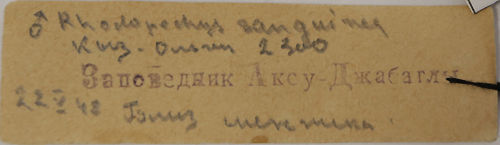 ♂ Rhodopechys sanguinea
Кыз-Ольген 2300
Заповедник Аксу-Джабаглы
22 V 48 Близ